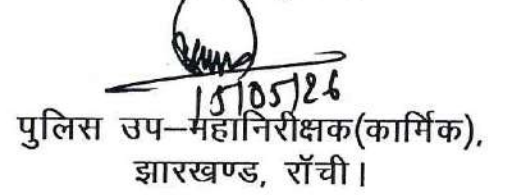 15/05/26
पुलिस उप–महानिरीक्षक(कार्मिक),
झारखण्ड, राँची।